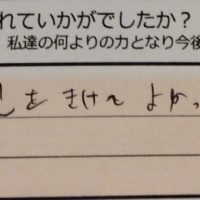 れていかがでしたか？
私達の何よりの力となり今後
しをきけて よかっ